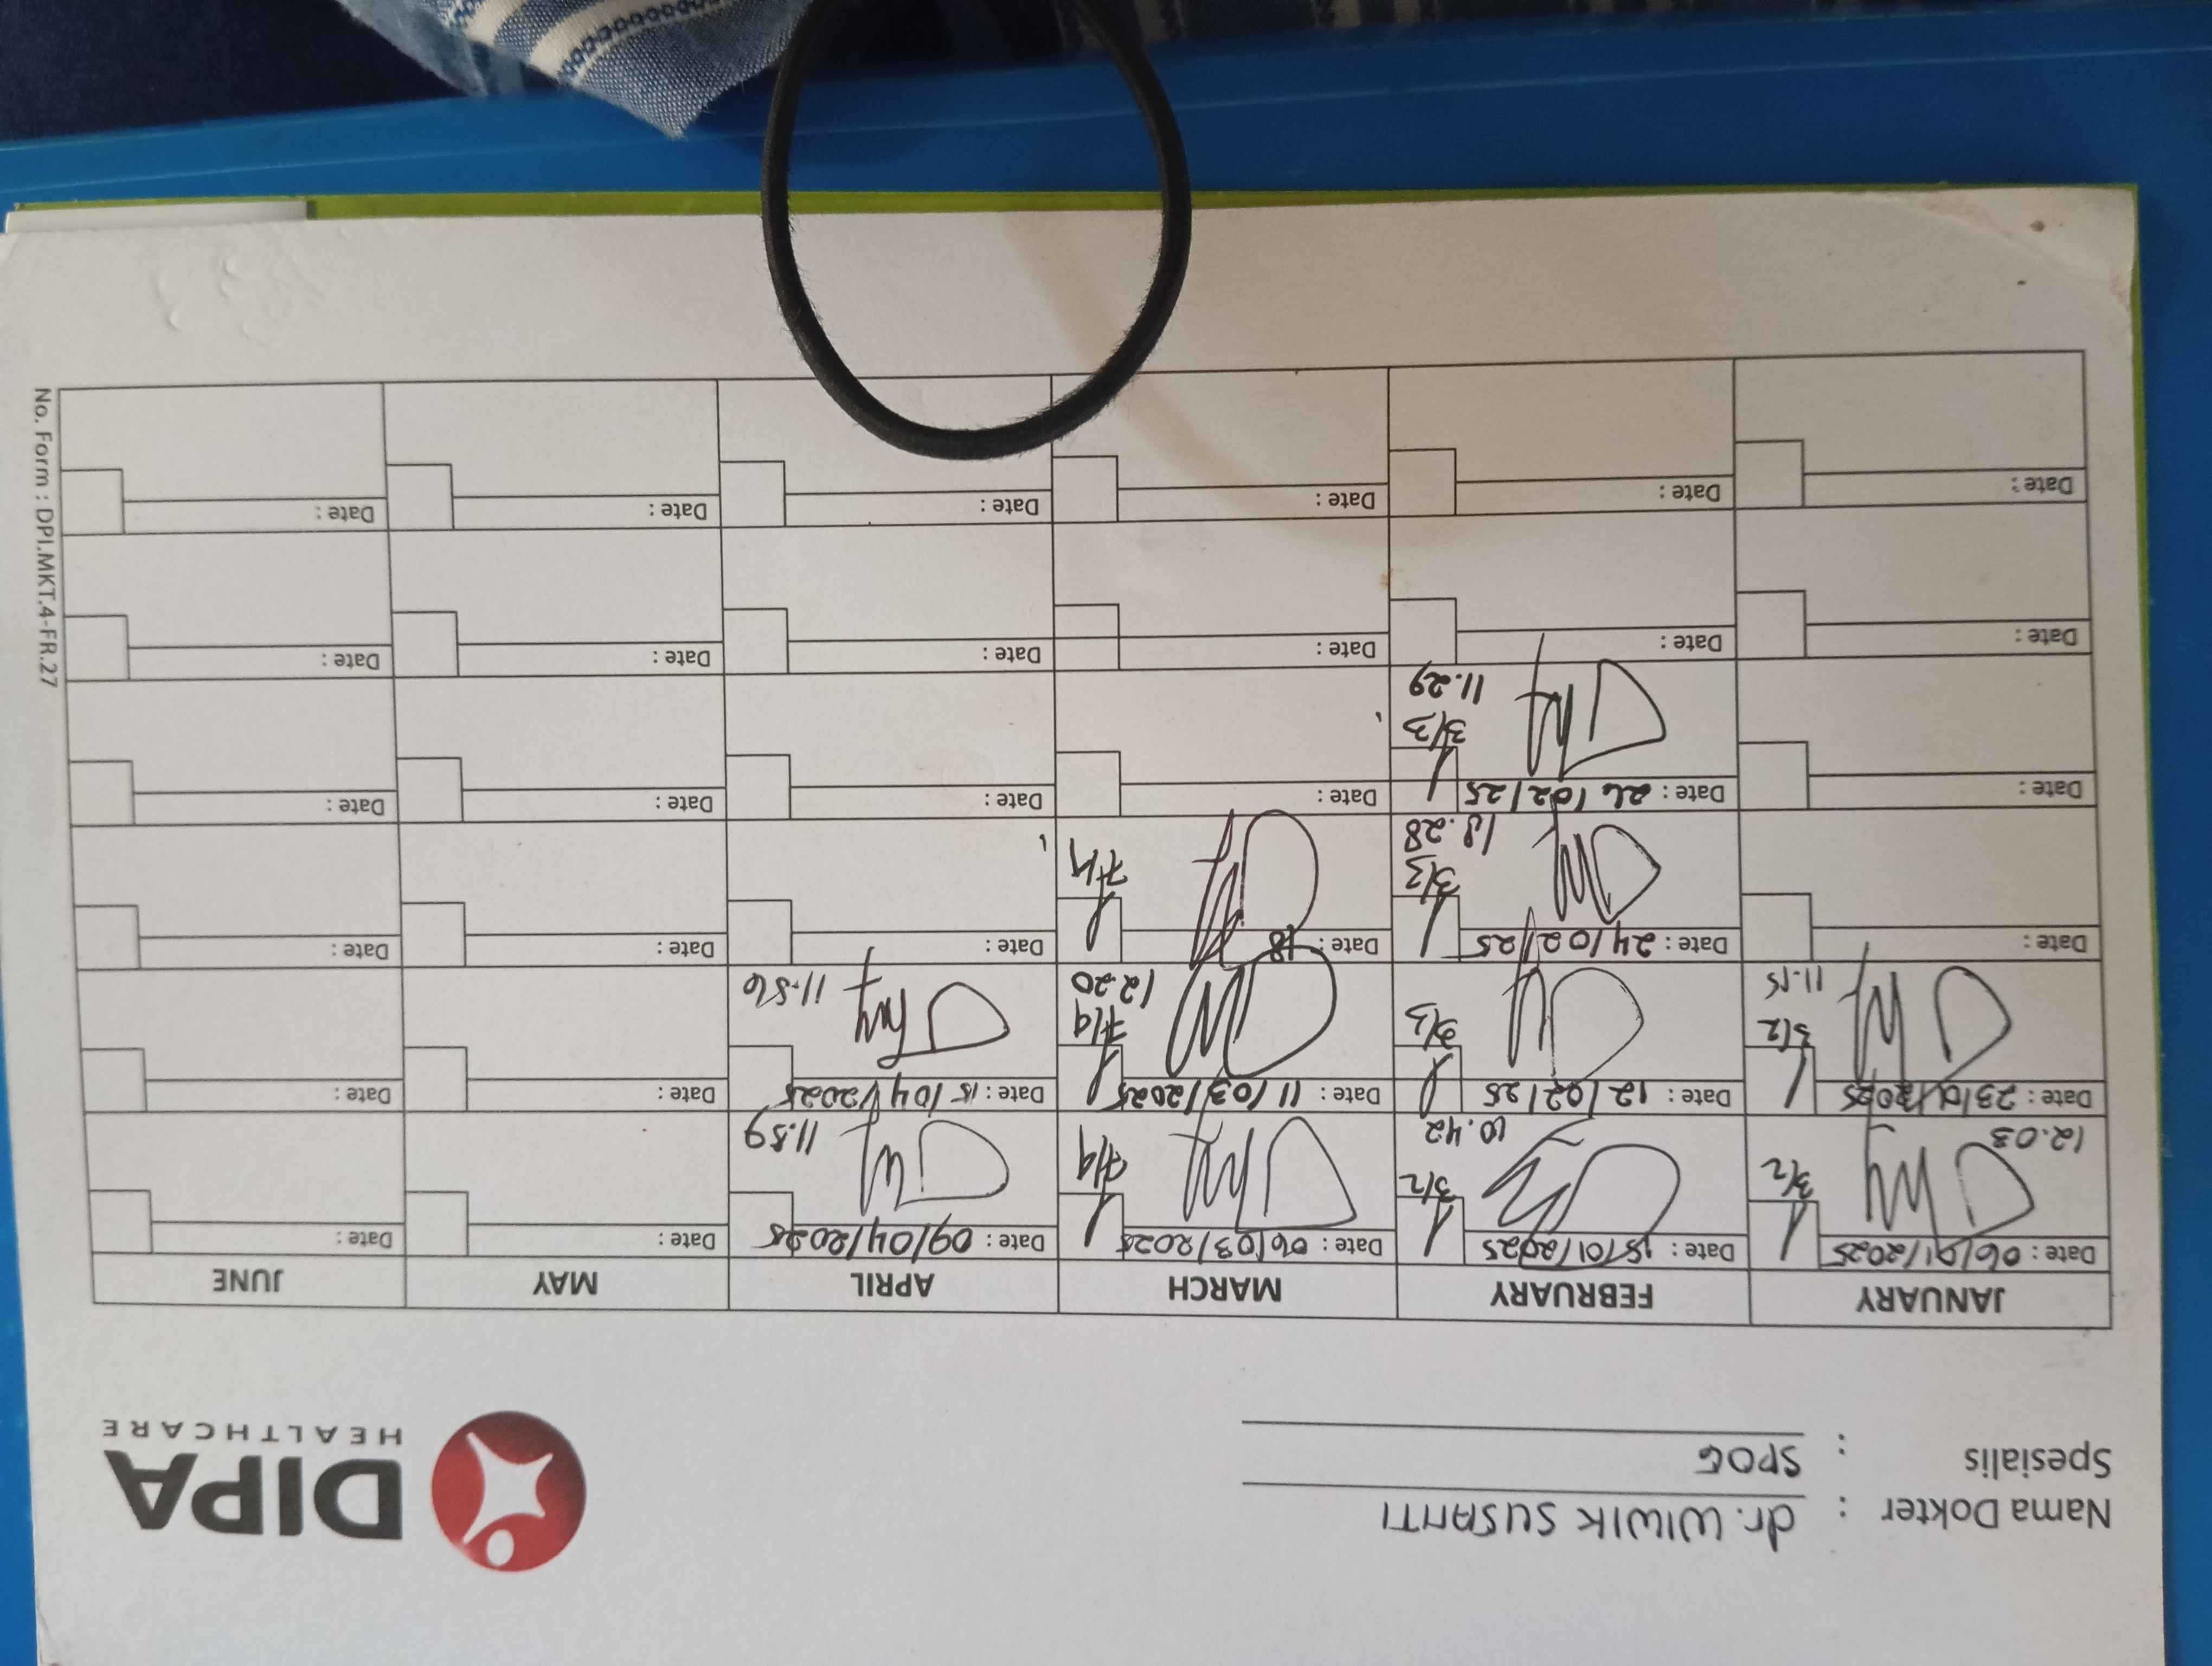 Nama Dokter : dr. WIWIK SUSANTI
Spesialis : SPOG
DIPA
HEALTHCARE
JANUARY FEBRUARY MARCH APRIL MAY JUNE
Date : 06/01/2025 Date : 15/01/2025 Date : 06/03/2025 Date : 09/04/2025 Date : Date :
12.03 3/2 3/2 10.42 7/9 11.59
Date : 23/01/2025 Date : 12/02/25 Date : 11/03/2025 Date : 15/04/2025 Date : Date :
3/2 11.15 3/3 7/9 12.20 11.56
Date : Date : 24/02/25 Date : 18 Date : Date : Date :
3/3 18.28
Date : Date : 26/02/25 Date : Date : Date : Date :
3/3 11.29
Date : Date : Date : Date : Date : Date :
Date : Date : Date : Date : Date : Date :
No. Form : DPI.MKT.4-FR.27